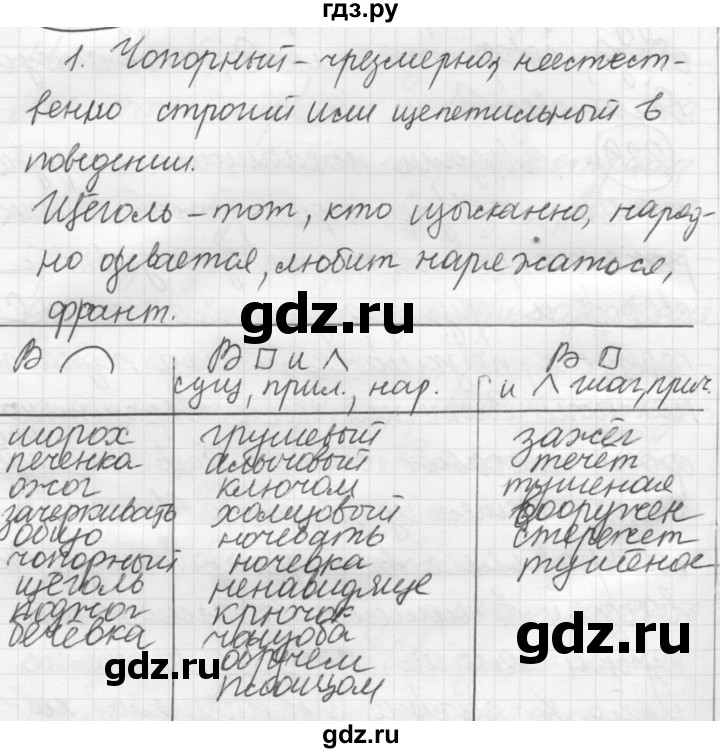 гдз.ру
1. Чопорный – чрезмерно, неестест-
венно строгий или щепетильный в
поведении.
Щёголь – тот, кто изысканно, наряд-
но одевается, любит наряжаться,
франт.
gdz.ru
В ⌒ В □ и ∧ В □
сущ., прил., нар. и ∧ глаг., прич.
шорох грушевый зажёг
печёнка алычовый течёт
ожог ключом тушёная
зачёркивать холщовый вооружён
общо ночевать стережёт
чопорный ночёвка тушёное
щёголь ненавидяще
поджог крючок
бечёвка чащоба
gdz.ru
обручем
gdz.ru
плащом
gdz.ru